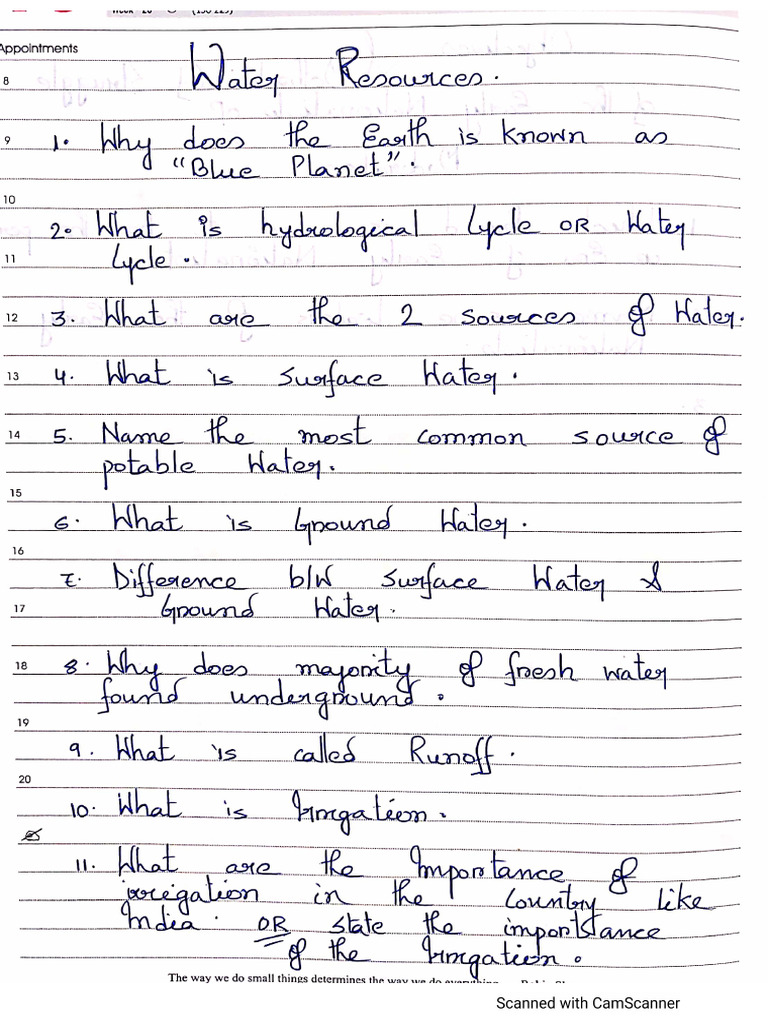 Week 26 (136-229)
Appointments
Water Resources.
8
9 1. Why does the Earth is known as
"Blue Planet".
10
2. What is hydrological Cycle OR Water
11 Cycle.
12 3. What are the 2 sources of Water.
13 4. What is Surface Water.
14 5. Name the most common source of
potable Water.
15
6. What is Ground Water.
16
7. Difference b/W Surface Water &
17 Ground Water.
18 8. Why does majority of fresh water
found underground.
19
9. What is called Runoff.
20
10. What is Irrigation.
11. What are the Importance of
irregation in the Country like
India. OR state the importstance
of the Irrigation.
The way we do small things determines the way we do everything
Scanned with CamScanner